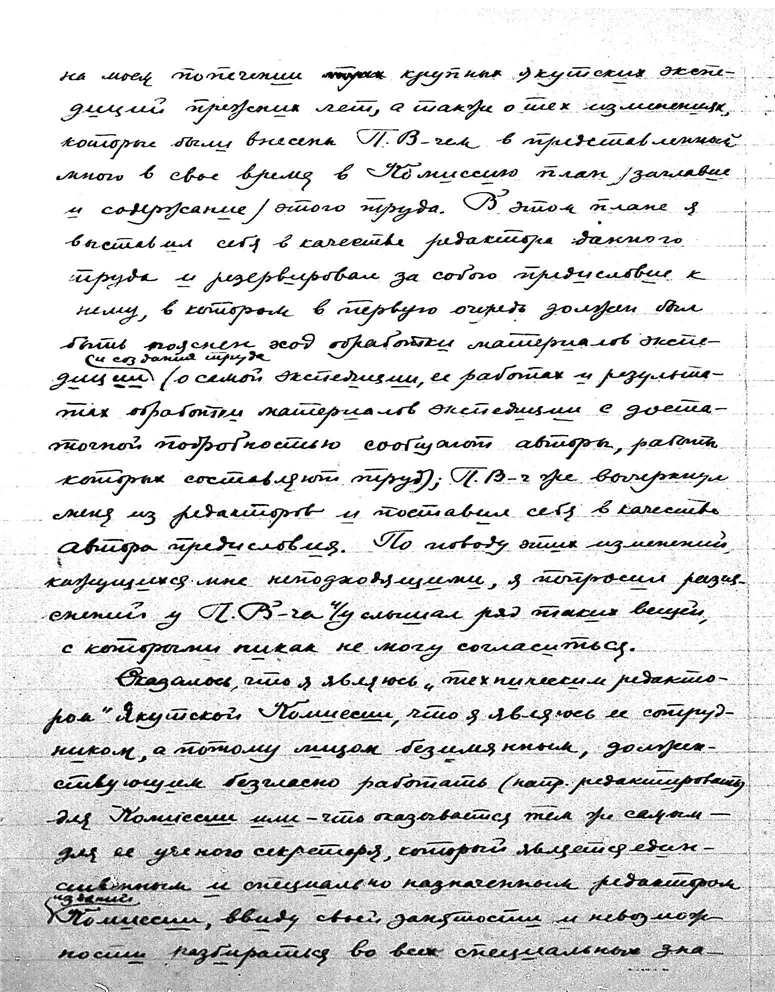 на моем попечении трех крупных якутских экспе-
диций прежних лет, а также о тех изменениях,
которые были внесены П.В-чем в представленный
мною в свое время в Комиссию план /заглавие
и содержание/ этого труда. В этом плане я
выставил себя в качестве редактора данного
труда и резервировал за собою предисловие к
нему, в котором в первую очередь должен был
быть пояснен ход обработки материалов экспе-
(и создания труда
диции (о самой экспедиции, ее работах и результа-
тах обработки материалов экспедиции с доста-
точной подробностью сообщают авторы, работы
которых составляют труд); П.В-ч же вычеркнул
меня из редакторов и поставил себя в качестве
автора предисловия. По поводу этих изменений,
кажущихся мне неподходящими, я попросил разъя-
снений у П.В-ча и услышал ряд таких вещей,
с которыми никак не могу согласиться.
Оказалось, что я являюсь „техническим редакто-
ром" Якутской Комиссии, что я являюсь ее сотруд-
ником, а потому лицом безимянным, должен-
ствующим безгласно работать (напр. редактировать)
для Комиссии или - что оказывается тем же самым -
для ее ученого секретаря, который является един-
ственным и специально назначенным редактором
изданий
Комиссии, ввиду своей занятости и невозмож-
ности разбираться во всех специальных зна-